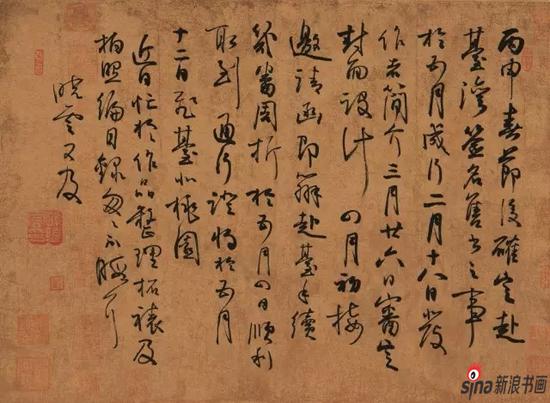 丙申春節後確定赴
臺灣簽名售書之事
於五月成行二月十八日發
作者簡介三月廿六日審定
封面設計四月初接
邀請函即辦赴臺手續
幾番周折於五月四日順利
取到通行證將於五月
十二日飛臺北桃園
近日忙於作品整理拓裱及
拍照編目錄匆匆不暇
曉雲又及
sina新浪书画